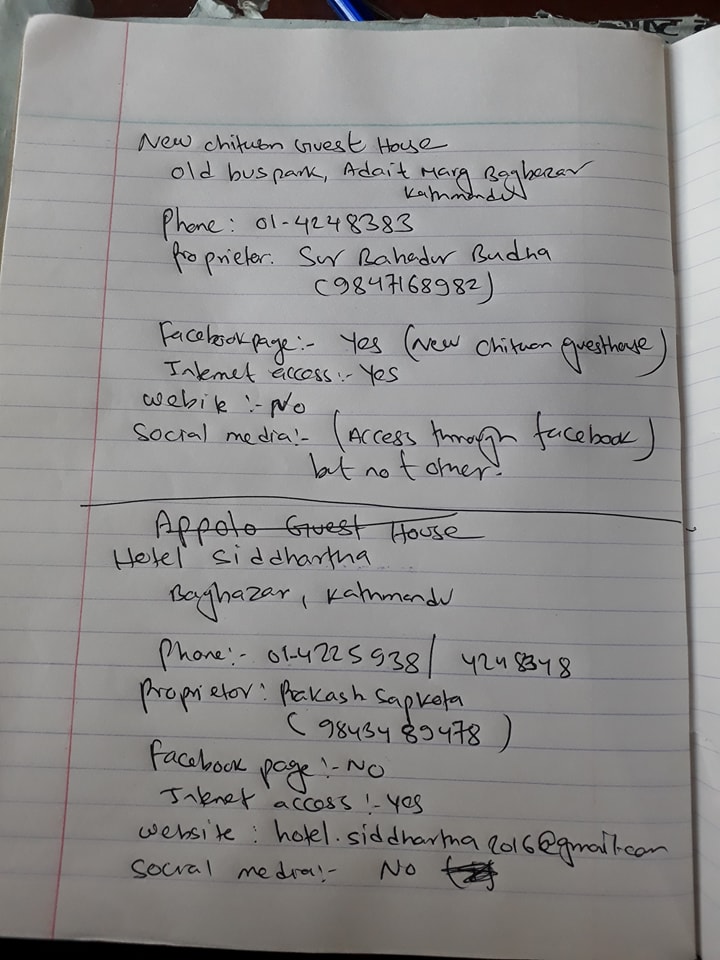 New chitwan Guest House
old bus park, Adait Marg Bagbazar
Kathmandu
Phone: 01-4248383
Proprieter. Sur Bahadur Budha
(9847168982)
Facebook page:- Yes (New Chitwan guesthouse)
Internet access:- Yes
website :- No
Social media:- (Access through facebook)
but not other.
Appolo Guest House
Hotel Siddhartha
Baghazar, Kathmandu
Phone:- 01-4225938/ 4248348
Proprietor: Prakash Sapkota
(9843489478)
Facebook page:- NO
Internet access :- Yes
website : hotel.siddhartha2016@gmail.com
Social media:- No